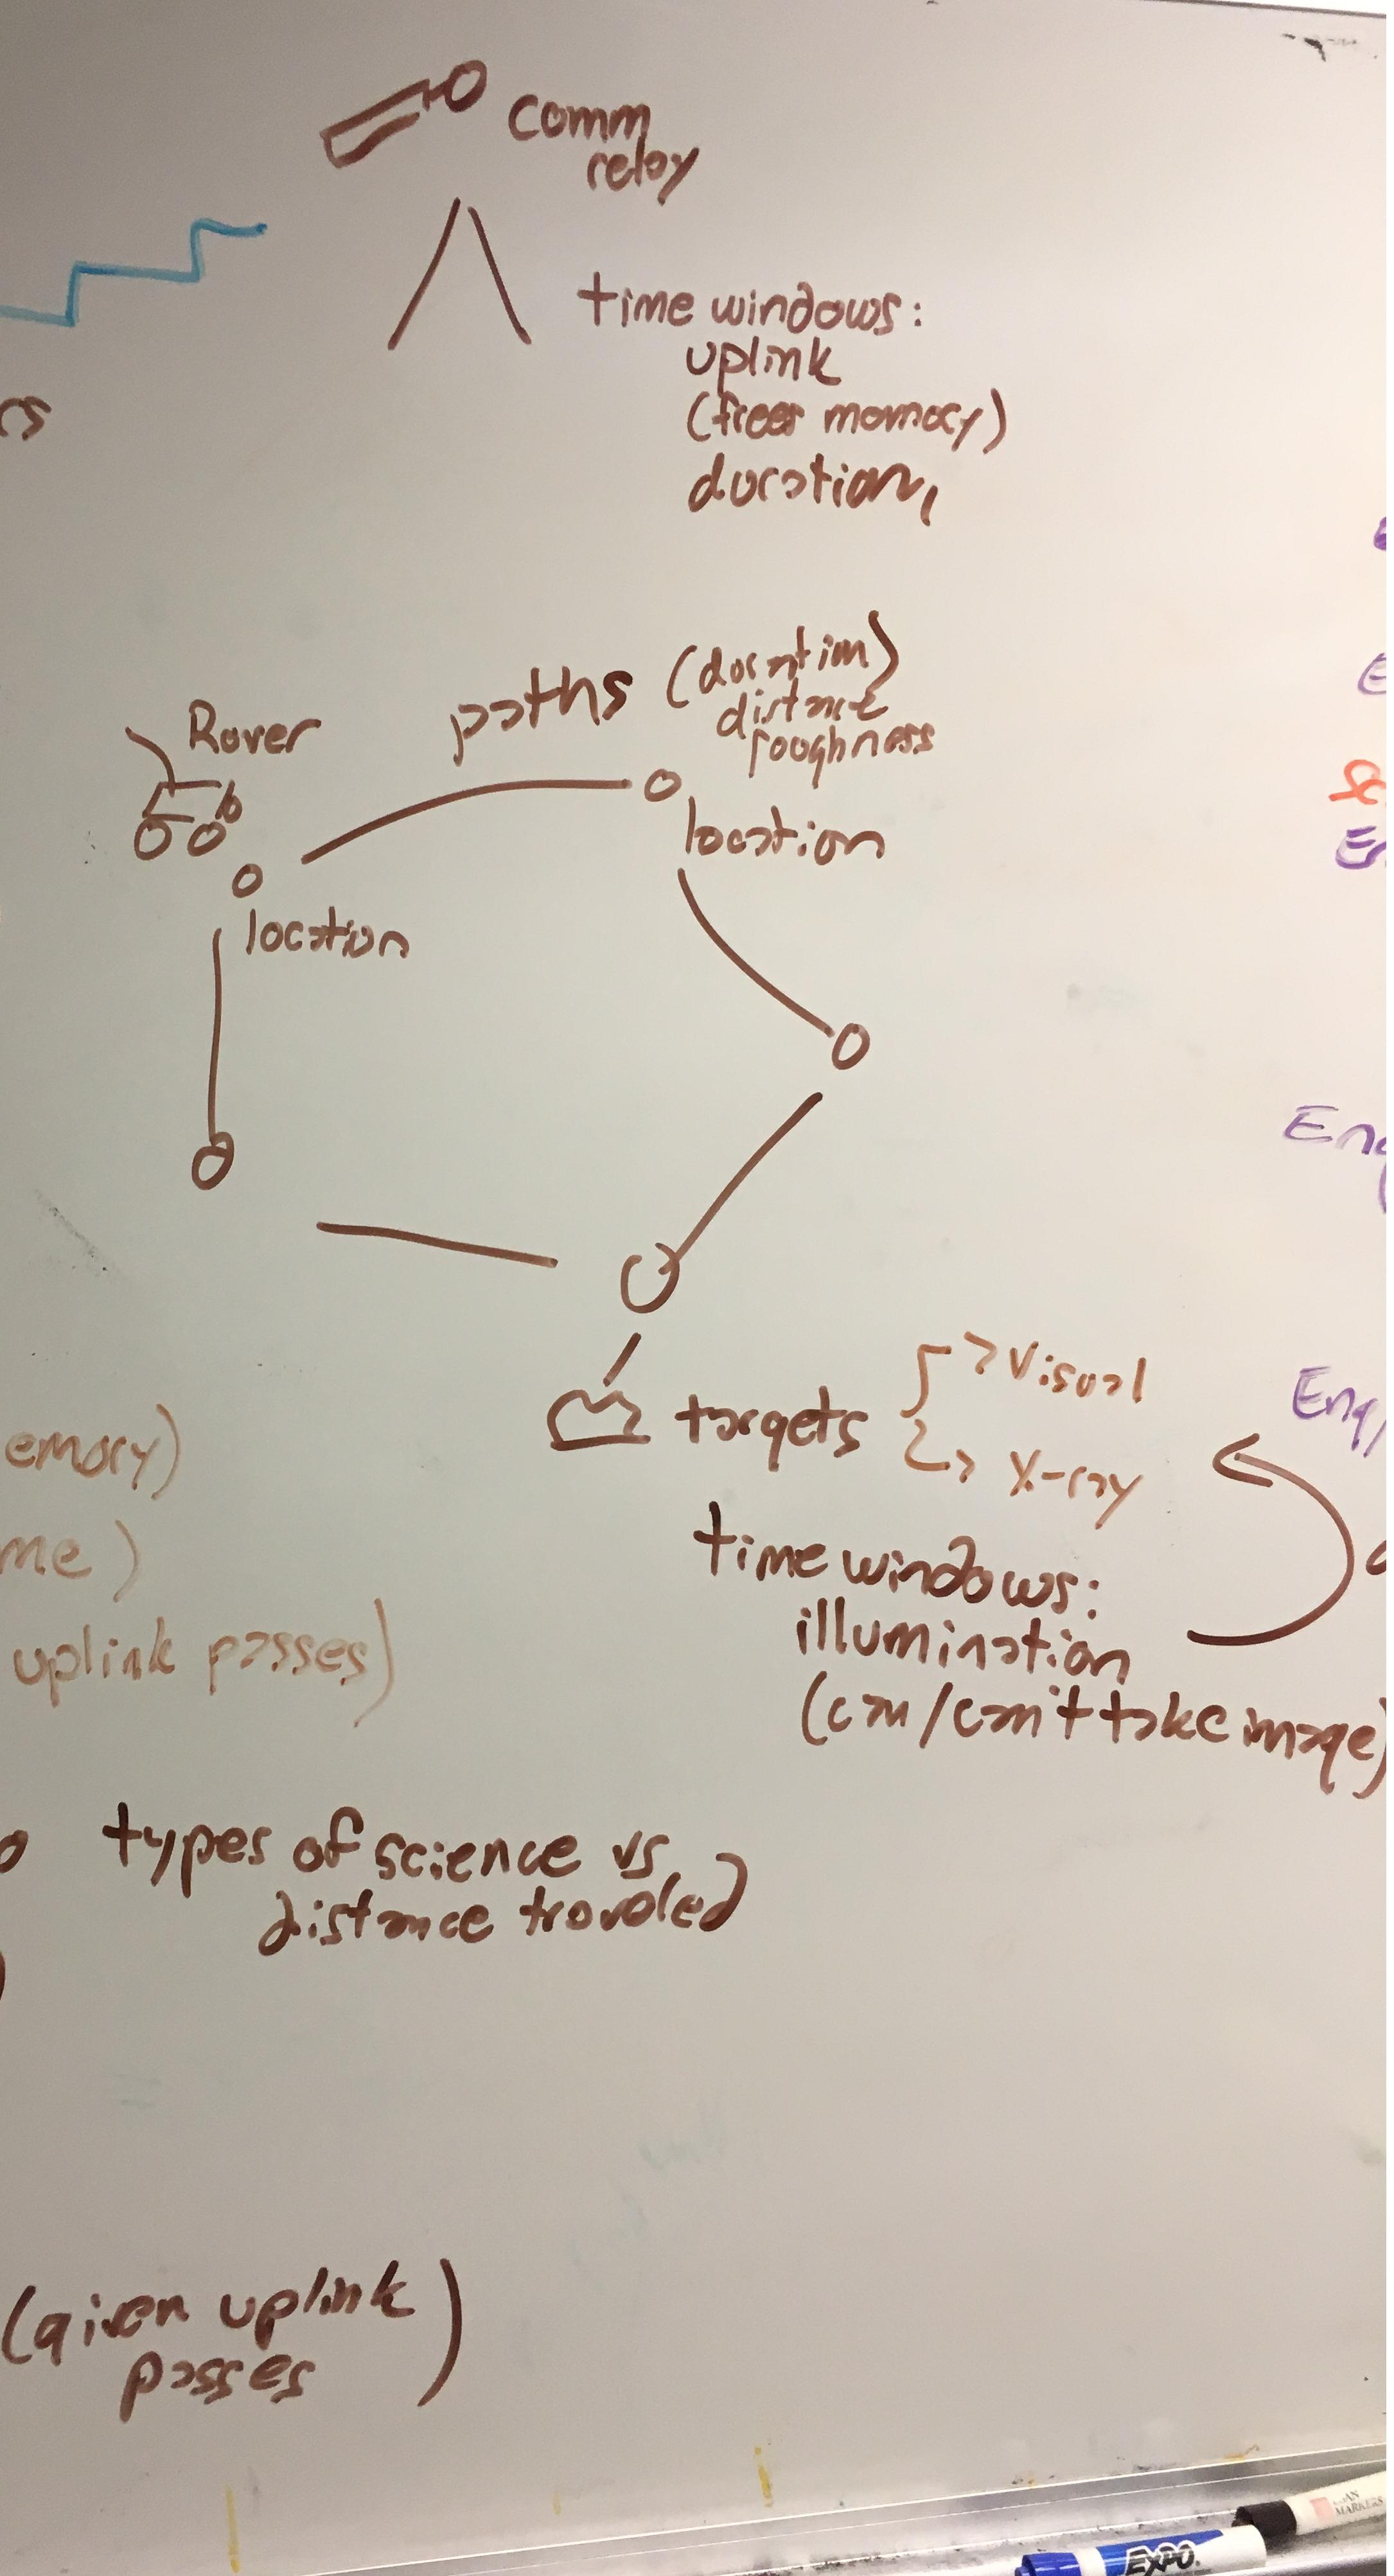 comm
relay
time windows:
uplink
(frees memory)
duration,
rs
paths (duration)
distance
roughness
Rover
location
location
targets
Visual
X-ray
time windows:
illumination
(can/can't take image)
emory)
me)
uplink passes)
types of science vs
distance traveled
(given uplink
passes)
Eng
Eng
EXPO
MARKERS